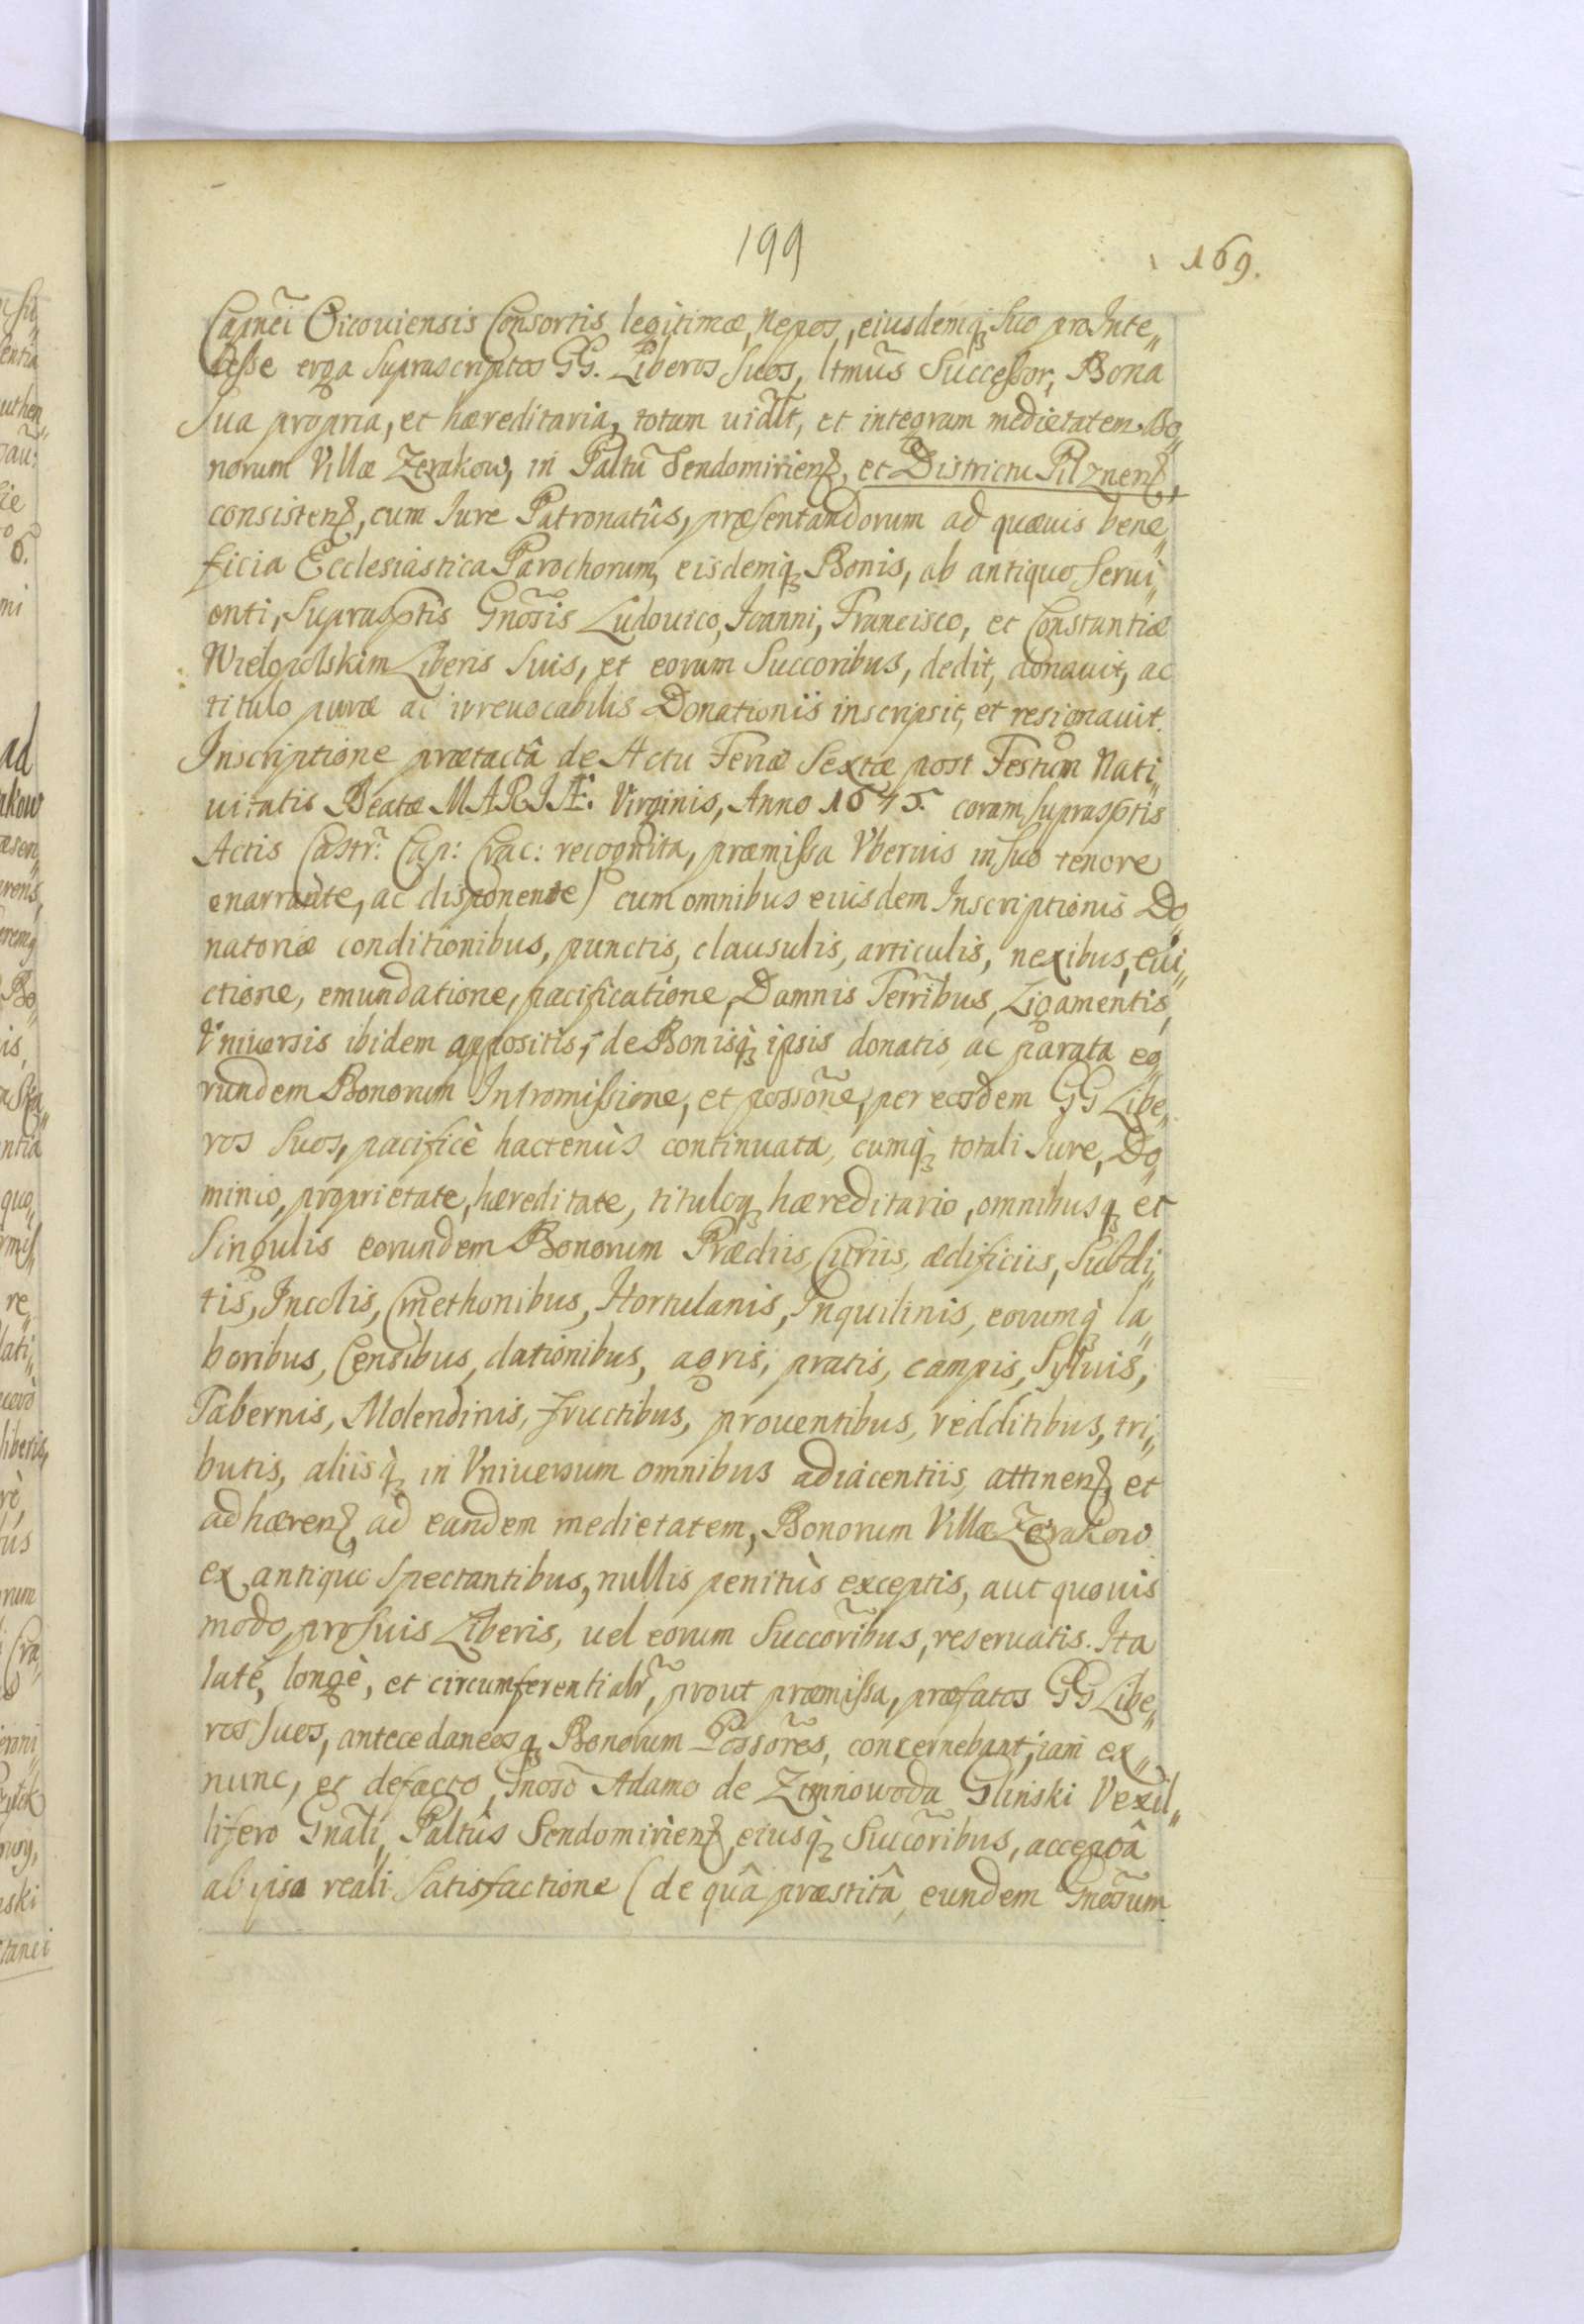 199
169.
Capnei Oicouiensis Consortis legitimæ, Nepos, eiusdemq; suo pro Inte„
resse erga suprascriptos GG. Liberos suos, ltmus Successor, Bona
sua propria, et hæreditaria, totam uidlt, et integram medietatem Bo„
norum Villæ Zerakow, in Paltu Sendomiriens, et Districtu Pilznens,
consistens, cum Iure Patronatûs, præsentandorum ad quæuis bene„
ficia Ecclesiastica Parochorum, eisdemq; Bonis, ab antiquo serui„
enti, suprasptis Gnosis Ludouico, Joanni, Francisco, et Constantiæ
Wielopolskim Liberis suis, et eorum Succoribus, dedit, donauit, ac
titulo puræ ac irreuocabilis Donationis inscripsit, et resignauit.
Inscriptione prætactâ de Actu Feriæ Sextæ post Festum Nati„
uitatis Beatæ MARIÆ. Virginis, Anno 1645. coram suprasptis
Actis Castr: Cap: Crac: recognita, præmissa Vberius in suo tenore
enarrante, ac disponente) cum omnibus eiusdem Inscriptionis Do„
natoriæ conditionibus, punctis, clausulis, articulis, nexibus, eui„
ctione, emundatione, pacificatione, Damnis Terribus, Ligamentis,
Vniuersis ibidem appositis, de Bonisq; ipsis donatis, ac parata eo„
rundem Bonorum Intromissione, et possone, per eosdem GG Libe„
ros suos, pacificè hactenùs continuata, cumq; totali Iure, Do„
minio, proprietate, hæreditate, tituloq; hæreditario, omnibusq; et
singulis eorundem Bonorum Prædiis, Curiis, ædificiis, Subdi„
tis, Incolis, Cmethonibus, Hortulanis, Inquilinis, eorumq; la„
boribus, Censibus, dationibus, agris, pratis, campis, Syluis,
Tabernis, Molendinis, fructibus, prouentibus, redditibus, tri„
butis, aliisq; in Vniuersum omnibus adiacentiis, attinens, et
adhærens, ad eandem medietatem, Bonorum Villæ Zerakow
ex antiquo spectantibus, nullis penitùs exceptis, aut quouis
modo, pro suis Liberis, uel eorum Succoribus, reseruatis. Ita
latè, longè, et circumferentialr, prout præmissa, præfatos GG Libe„
ros suos, antecedaneosq; Bonorum Possores, concernebant; iam ex„
nunc, et defacto, Gnoso Adamo de Zimnowoda Glinski Vexil„
lifero Gnali, Paltûs Sendomiriens, eiusq; Succoribus, acceptâ
ab ipso reali satisfactione (de quâ præstitâ, eundem Gnosum